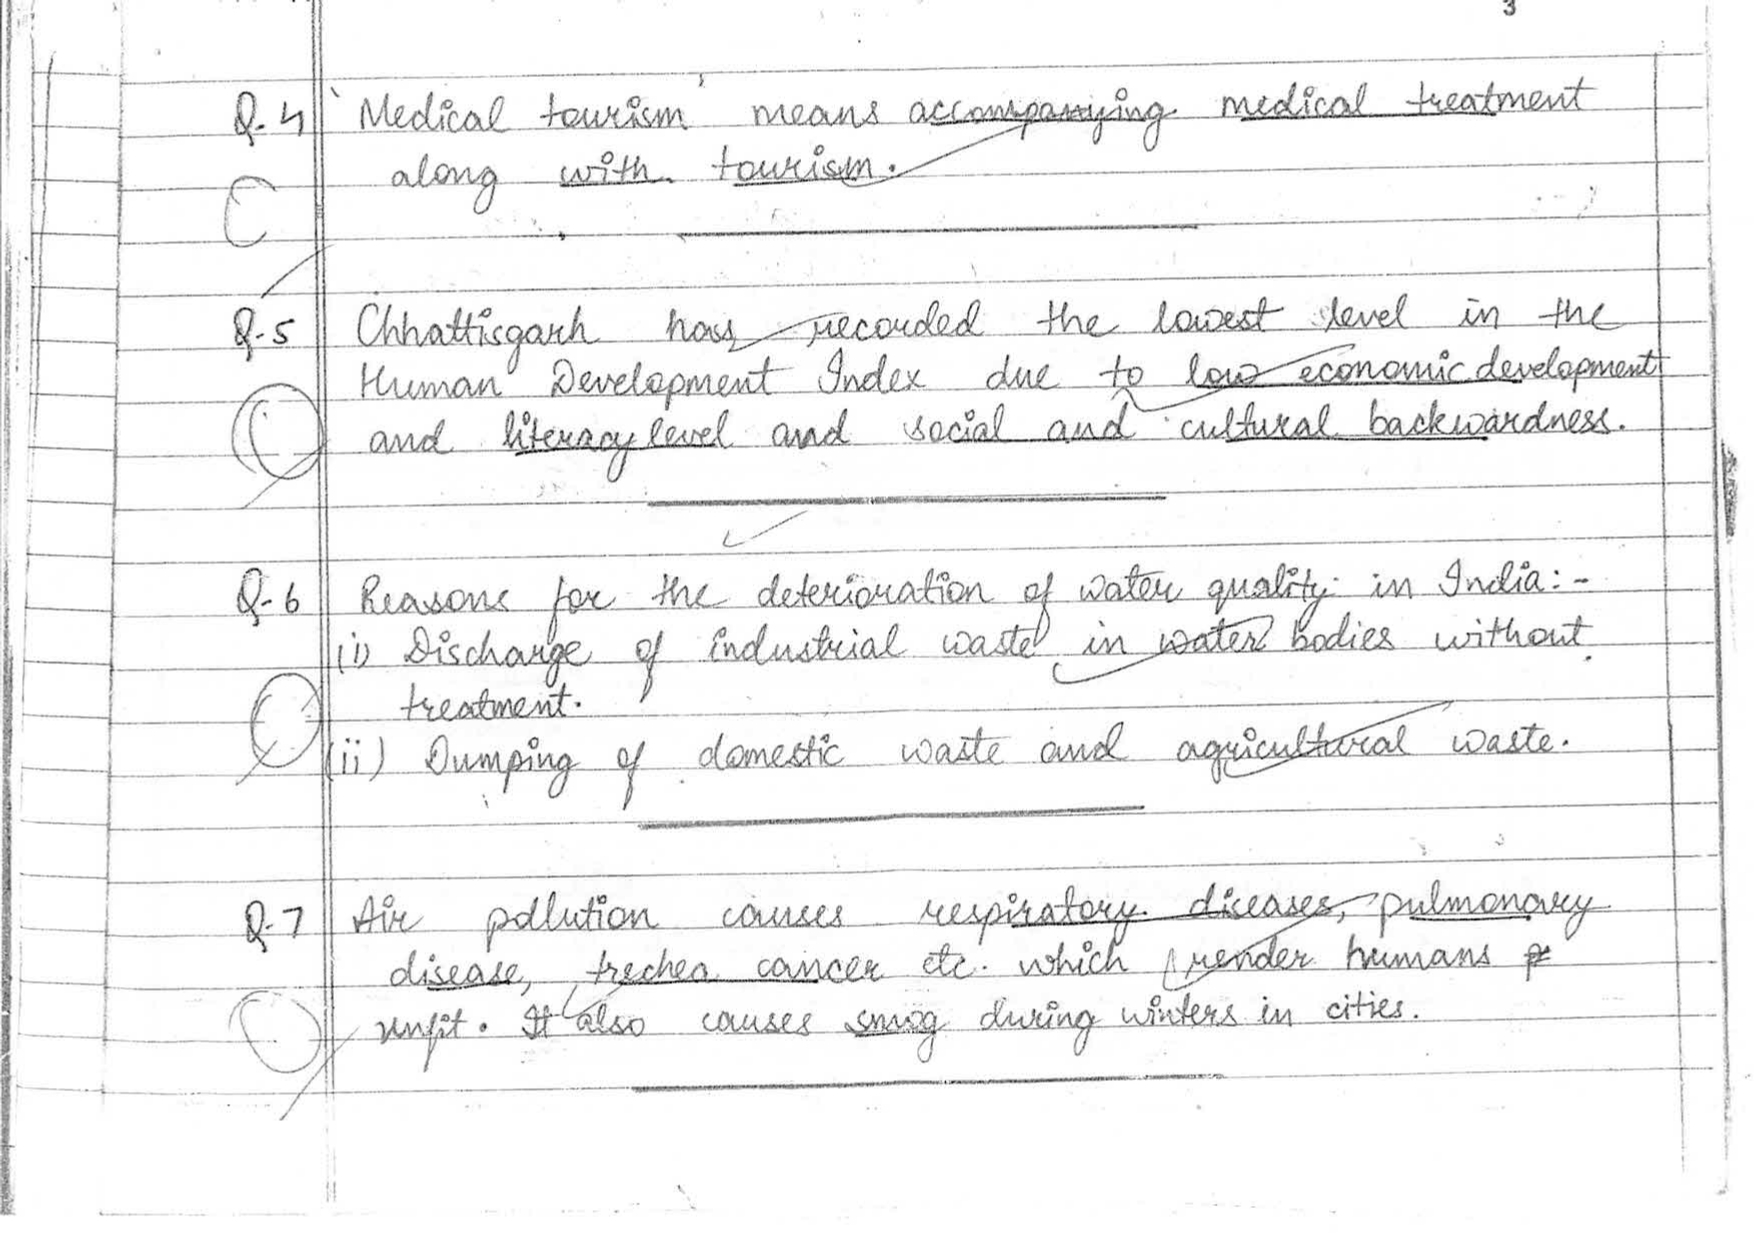 3
Q.4 'Medical tourism' means accompanying medical treatment
along with tourism.
Q.5 Chhattisgarh has recorded the lowest level in the
Human Development Index due to low economic development
and literacy level and social and cultural backwardness.
Q.6 Reasons for the deterioration of water quality in India:-
(i) Discharge of industrial waste in water bodies without
treatment.
(ii) Dumping of domestic waste and agricultural waste.
Q.7 Air pollution causes respiratory diseases, pulmonary
disease, trechea cancer etc. which render humans
unfit. It also causes smog during winters in cities.